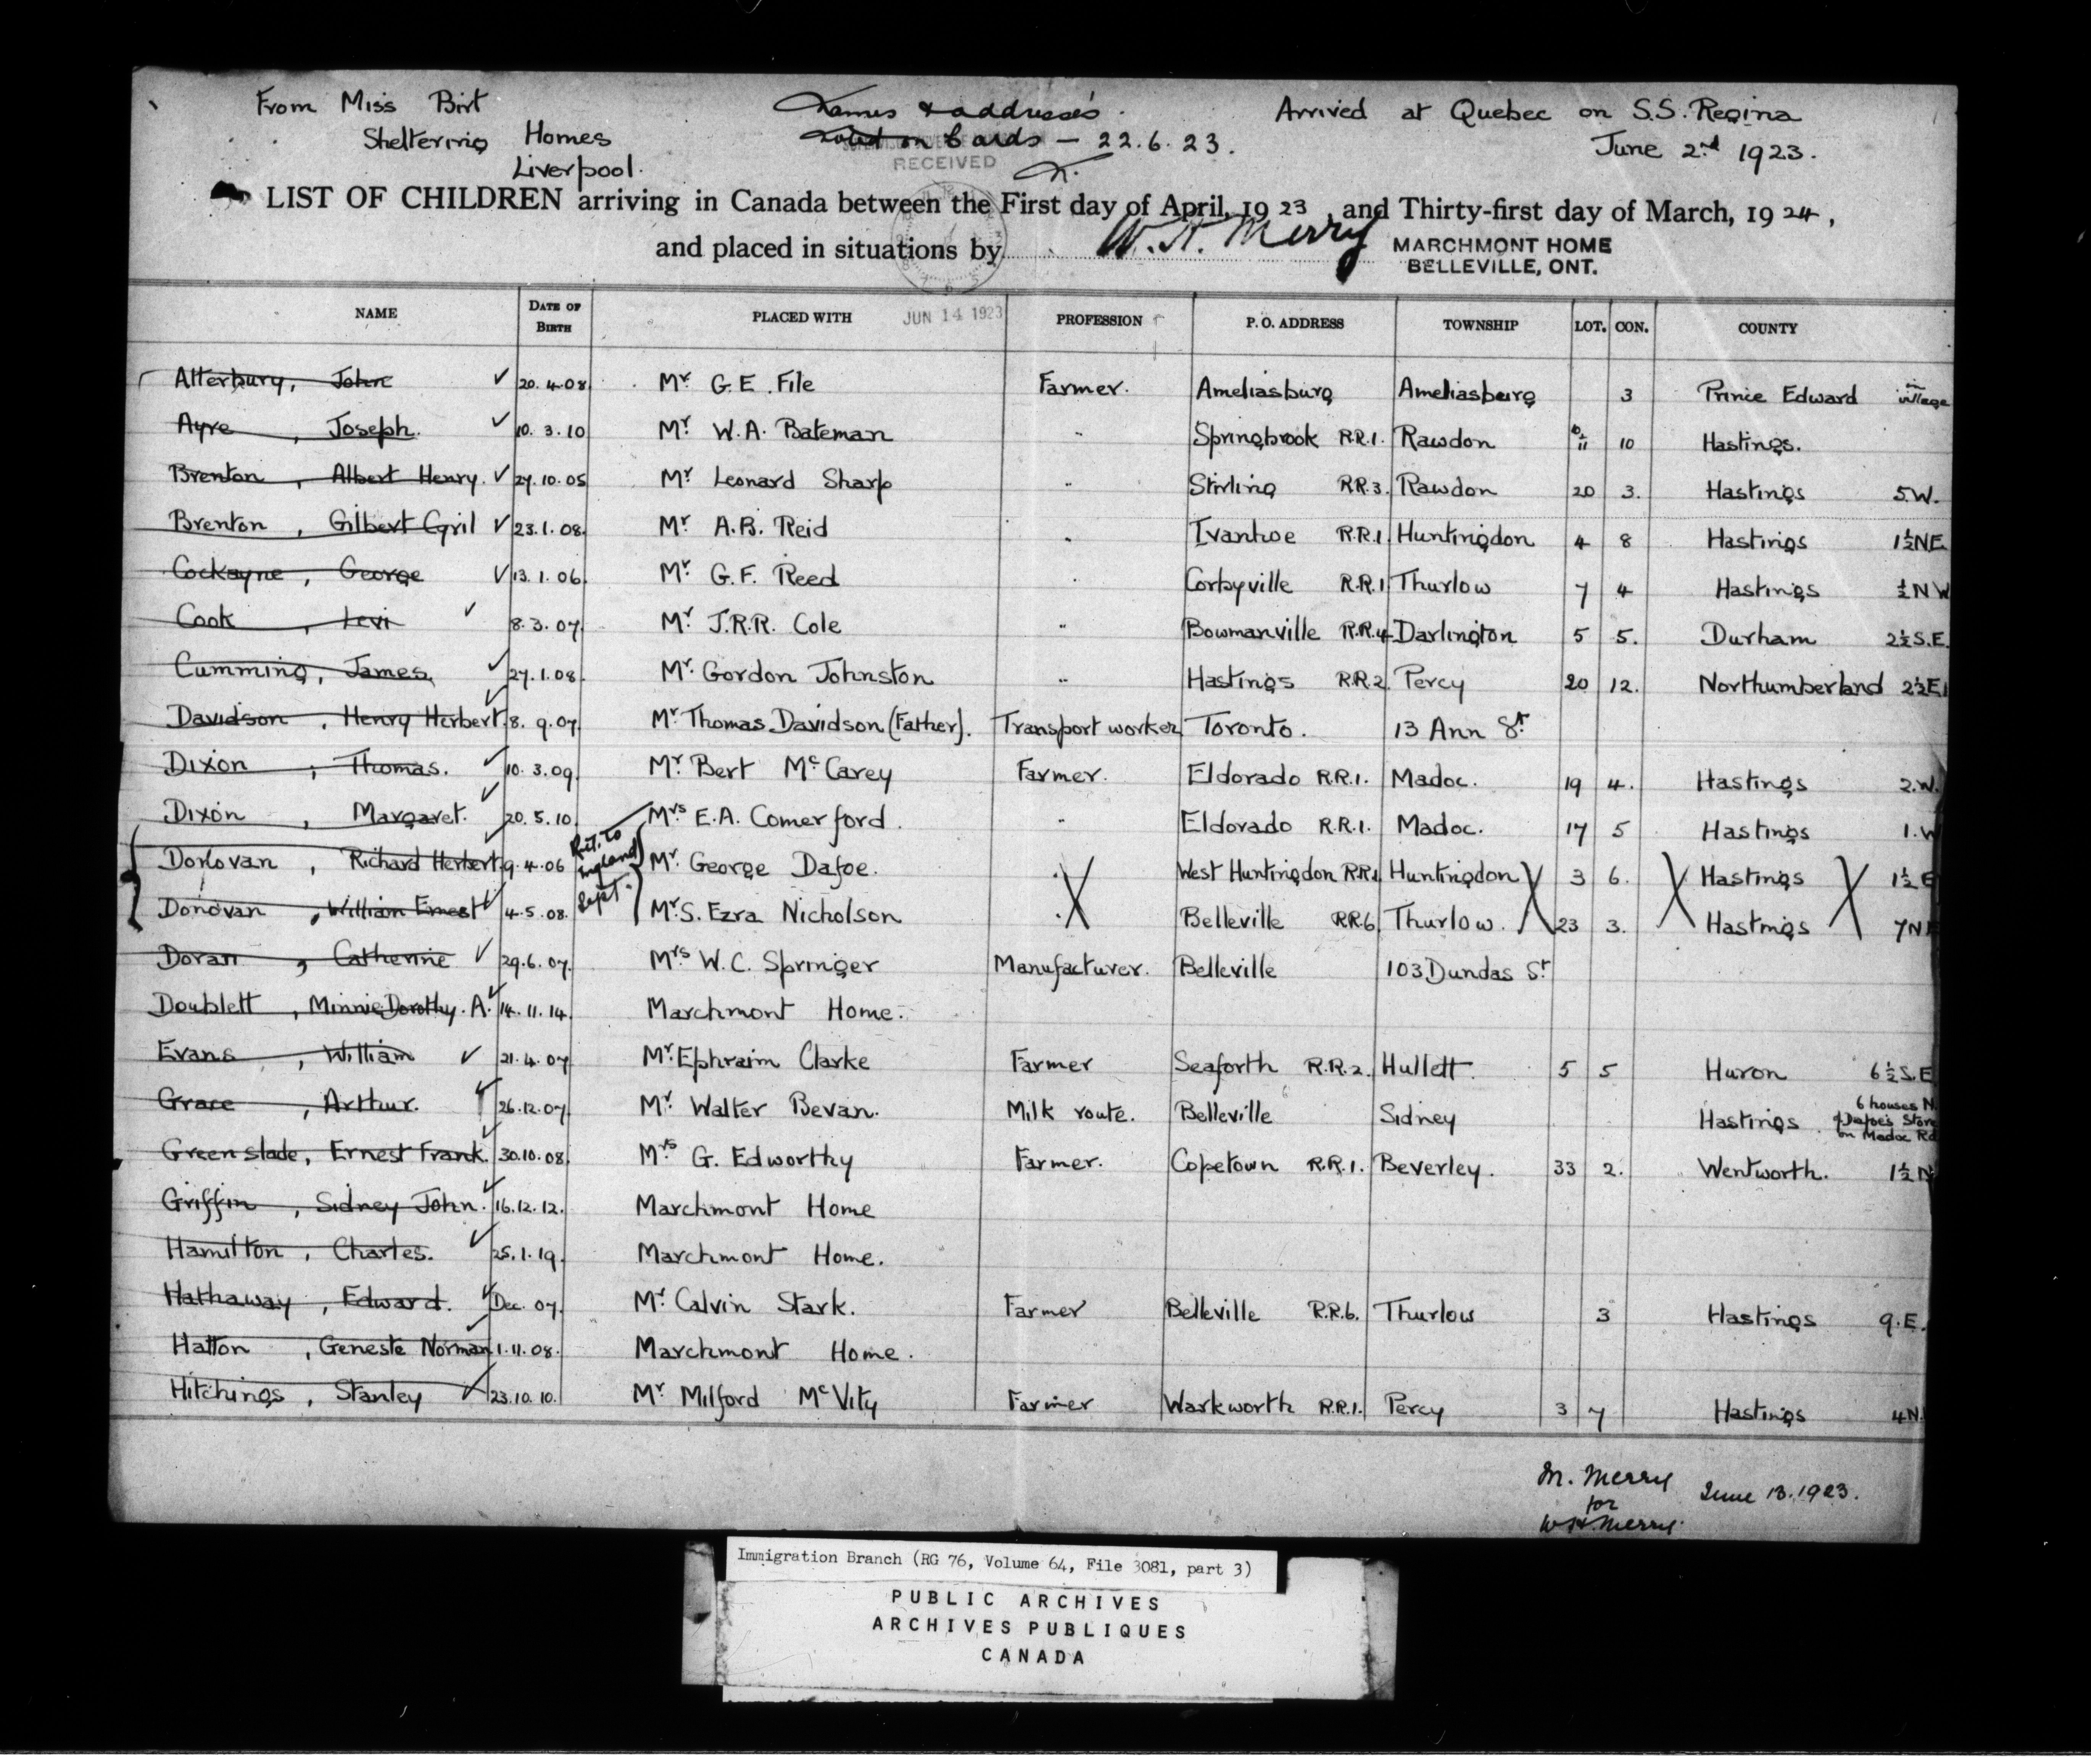 From Miss Birt
Sheltering Homes
Liverpool.
Names & addresses
on Cards – 22.6.23.
RECEIVED
Arrived at Quebec on S.S. Regina
June 2nd 1923.
LIST OF CHILDREN arriving in Canada between the First day of April, 1923, and Thirty-first day of March, 1924,
and placed in situations by W. H. Merry MARCHMONT HOME
BELLEVILLE, ONT.
JUN 14 1923
NAME DATE OF BIRTH PLACED WITH PROFESSION P. O. ADDRESS TOWNSHIP LOT. CON. COUNTY
Atterbury, John ✓ 20.4.08 Mr G.E. File Farmer. Ameliasburg Ameliasburg 3 Prince Edward in village
Ayre, Joseph. ✓ 10.3.10 Mr W.A. Bateman " Springbrook R.R.1. Rawdon 10 Hastings.
Brenton, Albert Henry. ✓ 27.10.05 Mr Leonard Sharp " Stirling R.R.3. Rawdon 20 3. Hastings 5.W.
Brenton, Gilbert Cyril ✓ 23.1.08. Mr A.B. Reid " Ivanhoe R.R.1. Huntingdon 4 8 Hastings 1½NE
Cockayne, George ✓ 13.1.06. Mr G.F. Reed " Corbyville R.R.1 Thurlow 7 4 Hastings ½NW
Cook, Levi ✓ 8.3.07. Mr J.R.R. Cole " Bowmanville R.R.4 Darlington 5 5. Durham 2½S.E.
Cumming, James. ✓ 27.1.08. Mr. Gordon Johnston " Hastings R.R.2. Percy 20 12. Northumberland 2½E.
Davidson, Henry Herbert ✓ 8.9.07. Mr. Thomas Davidson (Father). Transport worker Toronto. 13 Ann St
Dixon, Thomas. ✓ 10.3.09. Mr. Bert McCarey Farmer. Eldorado R.R.1. Madoc. 19 4. Hastings 2.W.
Dixon, Margaret. ✓ 20.5.10. Mrs E.A. Comerford. " Eldorado R.R.1. Madoc. 17 5 Hastings 1.W
Donovan, Richard Herbert ✓ 9.4.06 Mr. George Dafoe. " West Huntingdon R.R.1 Huntingdon 3 6. Hastings 1½E
Ret. to
England
Sept.
Donovan, William Ernest ✓ 4.5.08. Mr. S. Ezra Nicholson " Belleville R.R.6 Thurlow. 23 3. Hastings 7N
Doran, Catherine ✓ 29.6.07. Mrs W.C. Springer Manufacturer. Belleville 103 Dundas St
Doublett, Minnie Dorothy. A. ✓ 14.11.14. Marchmont Home.
Evans, William ✓ 21.4.07 Mr. Ephraim Clarke Farmer Seaforth R.R.2. Hullett. 5 5 Huron 6½S.E
Grace, Arthur. ✓ 26.12.07 Mr. Walter Bevan. Milk route. Belleville Sidney Hastings 6 houses N. of Dafoe's Store on Madoc Rd
Greenslade, Ernest Frank. ✓ 30.10.08. Mrs G. Edworthy Farmer. Copetown R.R.1. Beverley. 33 2. Wentworth. 1½N
Griffin, Sidney John. ✓ 16.12.12. Marchmont Home
Hamilton, Charles. ✓ 25.1.19. Marchmont Home.
Hathaway, Edward. ✓ Dec. 07. Mr. Calvin Stark. Farmer Belleville R.R.6. Thurlow 3 Hastings 9.E.
Hatton, Geneste Norman ✓ 1.11.08. Marchmont Home.
Hitchings, Stanley ✓ 23.10.10. Mr Milford McVity Farmer Warkworth R.R.1. Percy 3 7 Hastings 4N.
M. Merry
for
W.H. Merry.
June 13. 1923.
Immigration Branch (RG 76, Volume 64, File 3081, part 3)
PUBLIC ARCHIVES
ARCHIVES PUBLIQUES
CANADA